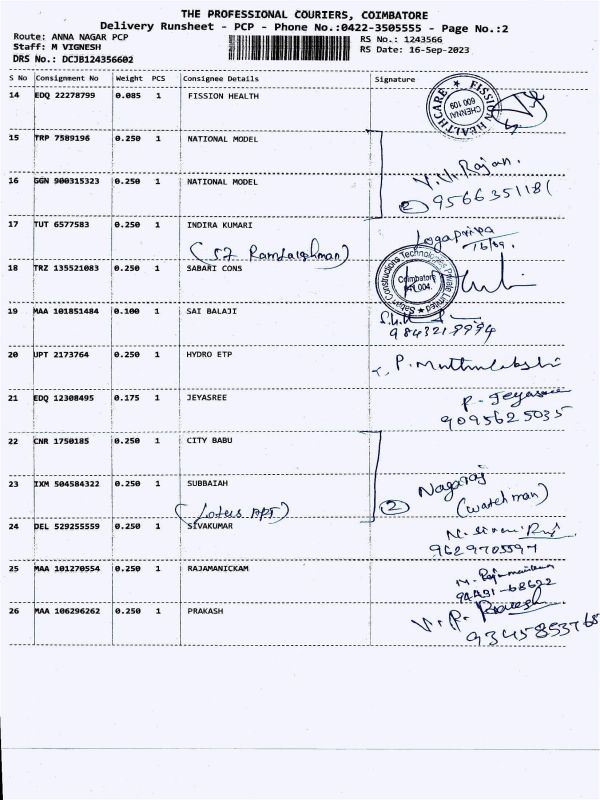 THE PROFESSIONAL COURIERS, COIMBATORE
Delivery Runsheet - PCP - Phone No.:0422-3505555 - Page No.:2
Route: ANNA NAGAR PCP RS No.: 1243566
Staff: M VIGNESH RS Date: 16-Sep-2023
DRS No.: DCJB124356602
S No Consignment No Weight PCS Consignee Details Signature
14 EDQ 22278799 0.085 1 FISSION HEALTH
FISSION HEALTHCARE
CHENNAI
600 109
15 TRP 7589196 0.250 1 NATIONAL MODEL
V.V.Rajan.
16 GGN 900315323 0.250 1 NATIONAL MODEL
2 9566351181
17 TUT 6577583 0.250 1 INDIRA KUMARI
Logapriya
16/09.
(57 Ramlakshman)
18 TRZ 135521083 0.250 1 SABARI CONS
Sabari Constructions Technologies Private Limited
Coimbatore
641 004.
19 MAA 101851484 0.100 1 SAI BALAJI
9843219994
20 UPT 2173764 0.250 1 HYDRO ETP
P. Muthulakshi
21 EDQ 12308495 0.175 1 JEYASREE
P. Jeyasree
9095625035
22 CNR 1750185 0.250 1 CITY BABU
23 IXM 504584322 0.250 1 SUBBAIAH
Nagaraj
2 (watchman)
(Lotus APT)
24 DEL 529255559 0.250 1 SIVAKUMAR
9629705597
25 MAA 101270554 0.250 1 RAJAMANICKAM
94431-68622
26 MAA 106296262 0.250 1 PRAKASH
V. P. Prakash
9345853768